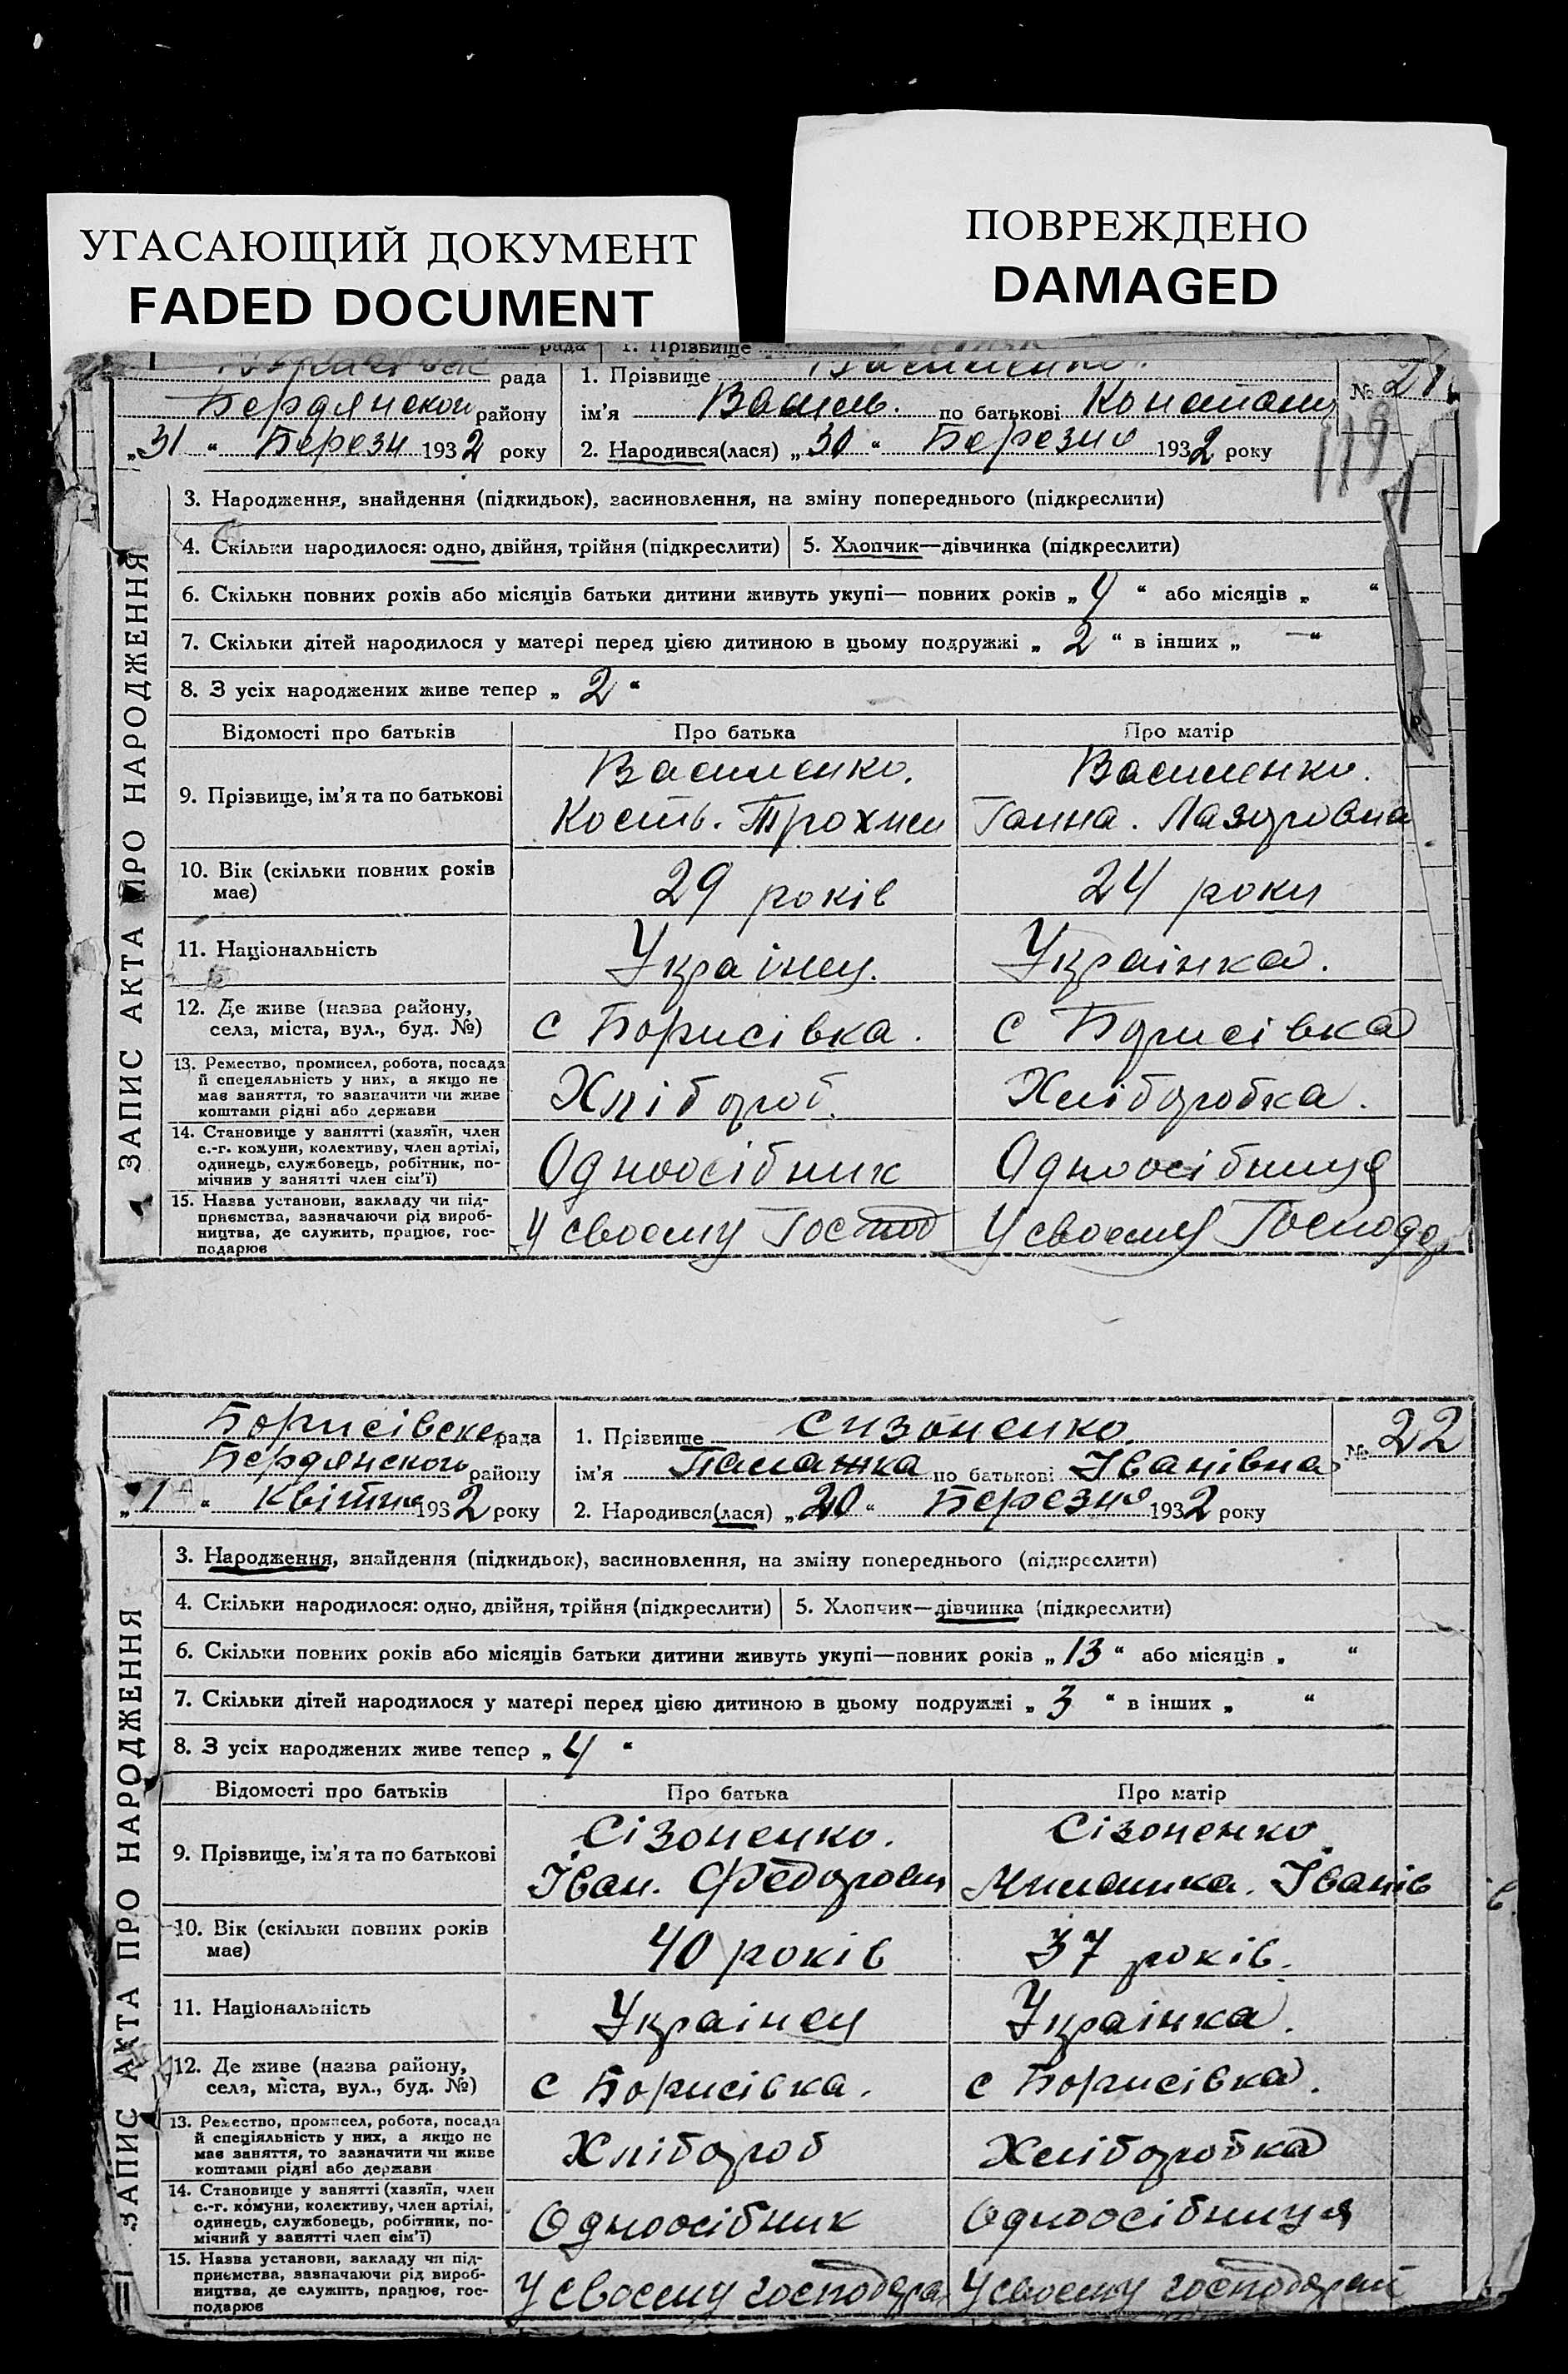 УГАСАЮЩИЙ ДОКУМЕНТ
FADED DOCUMENT
ПОВРЕЖДЕНО
DAMAGED
рада 1. Прізвище
рада 1. Прізвище Василенко. № 21
Бердянского району ім'я Василь. по батькові
„31“ Березн 1932 року 2. Народився(лася) „30“ Березня 1932 року
119
ЗАПИС АКТА ПРО НАРОДЖЕННЯ
3. Народження, знайдення (підкидьок), засиновлення, на зміну попереднього (підкреслити)
4. Скільки народилося: одно, двійня, трійня (підкреслити) 5. Хлопчик—дівчинка (підкреслити)
6. Скільки повних років або місяців батьки дитини живуть укупі— повних років „4“ або місяців „ “
7. Скільки дітей народилося у матері перед цією дитиною в цьому подружжі „2“ в інших „—“
8. З усіх народжених живе тепер „2“
Відомості про батьків Про батька Про матір
9. Прізвище, ім'я та по батькові Василенко. Василенко.
Кость. Трохим Ганна. Лазаровна
10. Вік (скільки повних років має) 29 років 24 роки
11. Національність Українец. Українка.
12. Де живе (назва району,
села, міста, вул., буд. №) с Борисівка. с Борисівка
13. Ремество, промисел, робота, посада
й спецеяльність у них, а якщо не
має заняття, то зазначити чи живе
коштами рідні або держави Хлібороб. Хліборобка.
14. Становище у занятті (хазяїн, член
с.-г. комуни, колективу, член артілі,
одинець, службовець, робітник, по-
мічнив у занятті член сім'ї) Одноосібник Одноосібниця
15. Назва установи, закладу чи під-
приємства, зазначаючи рід вироб-
ництва, де служить, працює, гос-
подарює У своему Господ У своему Господар
Борисівска рада 1. Прізвище Сизоненко № 22
Бердянского району ім'я Палажка по батькові Іванівна
„1“ Квітня 1932 року 2. Народився(лася) „20“ Березня 1932 року
ЗАПИС АКТА ПРО НАРОДЖЕННЯ
3. Народження, знайдення (підкидьок), засиновлення, на зміну попереднього (підкреслити)
4. Скільки народилося: одно, двійня, трійня (підкреслити) 5. Хлопчик—дівчинка (підкреслити)
6. Скільки повних років або місяців батьки дитини живуть укупі—повних років „13“ або місяців „ “
7. Скільки дітей народилося у матері перед цією дитиною в цьому подружжі „3“ в інших „ “
8. З усіх народжених живе тепер „4“
Відомості про батьків Про батька Про матір
9. Прізвище, ім'я та по батькові Сізоненко. Сізоненко
Іван. Федорович Іванів
10. Вік (скільки повних років має) 40 років 37 років.
11. Національність Українец Українка.
12. Де живе (назва району,
села, міста, вул., буд. №) с Борисівка. с Борисівка.
13. Ремество, промисел, робота, посада
й спеціяльність у них, а якщо не
має заняття, то зазначити чи живе
коштами рідні або держави Хлібороб Хліборобка
14. Становище у занятті (хазяїн, член
с.-г. комуни, колективу, член артілі,
одинець, службовець, робітник, по-
мічний у занятті член сім'ї) Одноосібник Одноосібниця
15. Назва установи, закладу чи під-
приємства, зазначаючи рід вироб-
ництва, де служить, працює, гос-
подарює У своему господар У своему господарст